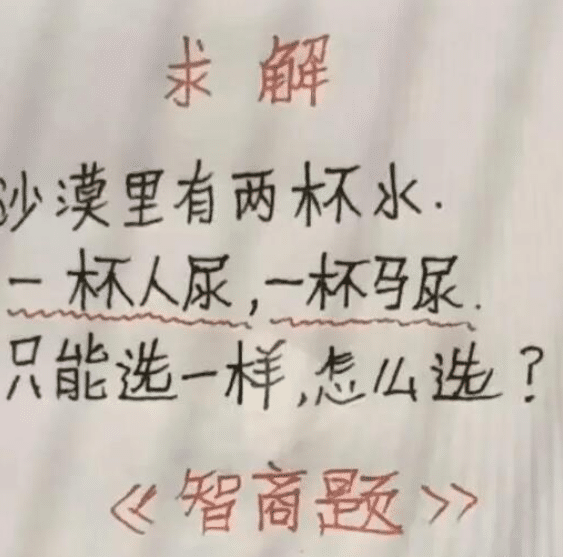 求解
沙漠里有两杯水.
一杯人尿,一杯马尿.
只能选一样,怎么选?
《智商题》